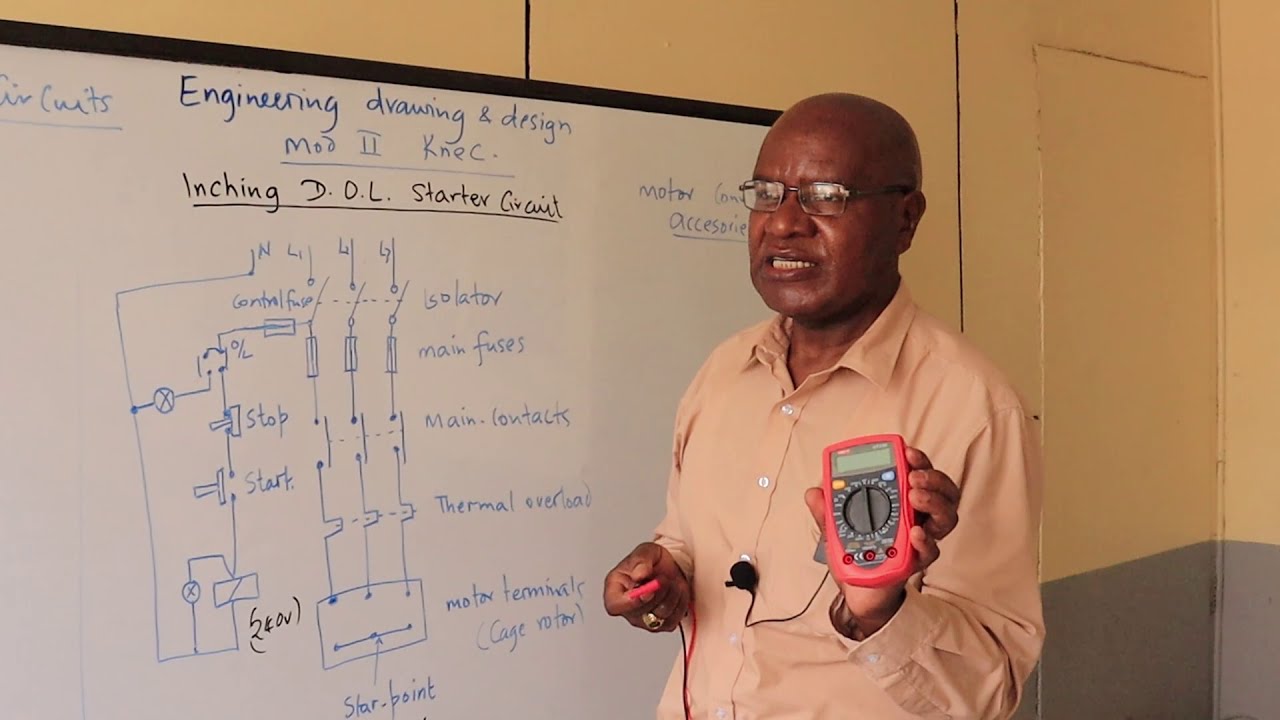 Circuits
Engineering drawing & design
Mod II Knec.
Inching D.O.L. Starter Circuit
motor
Accesorie
N L1 L2 L3
Controlfuse
Isolator
O/L
main fuses
Stop
Main-Contacts
Start.
Thermal overload
motor terminals
(Cage rotor)
(240V)
Star-point